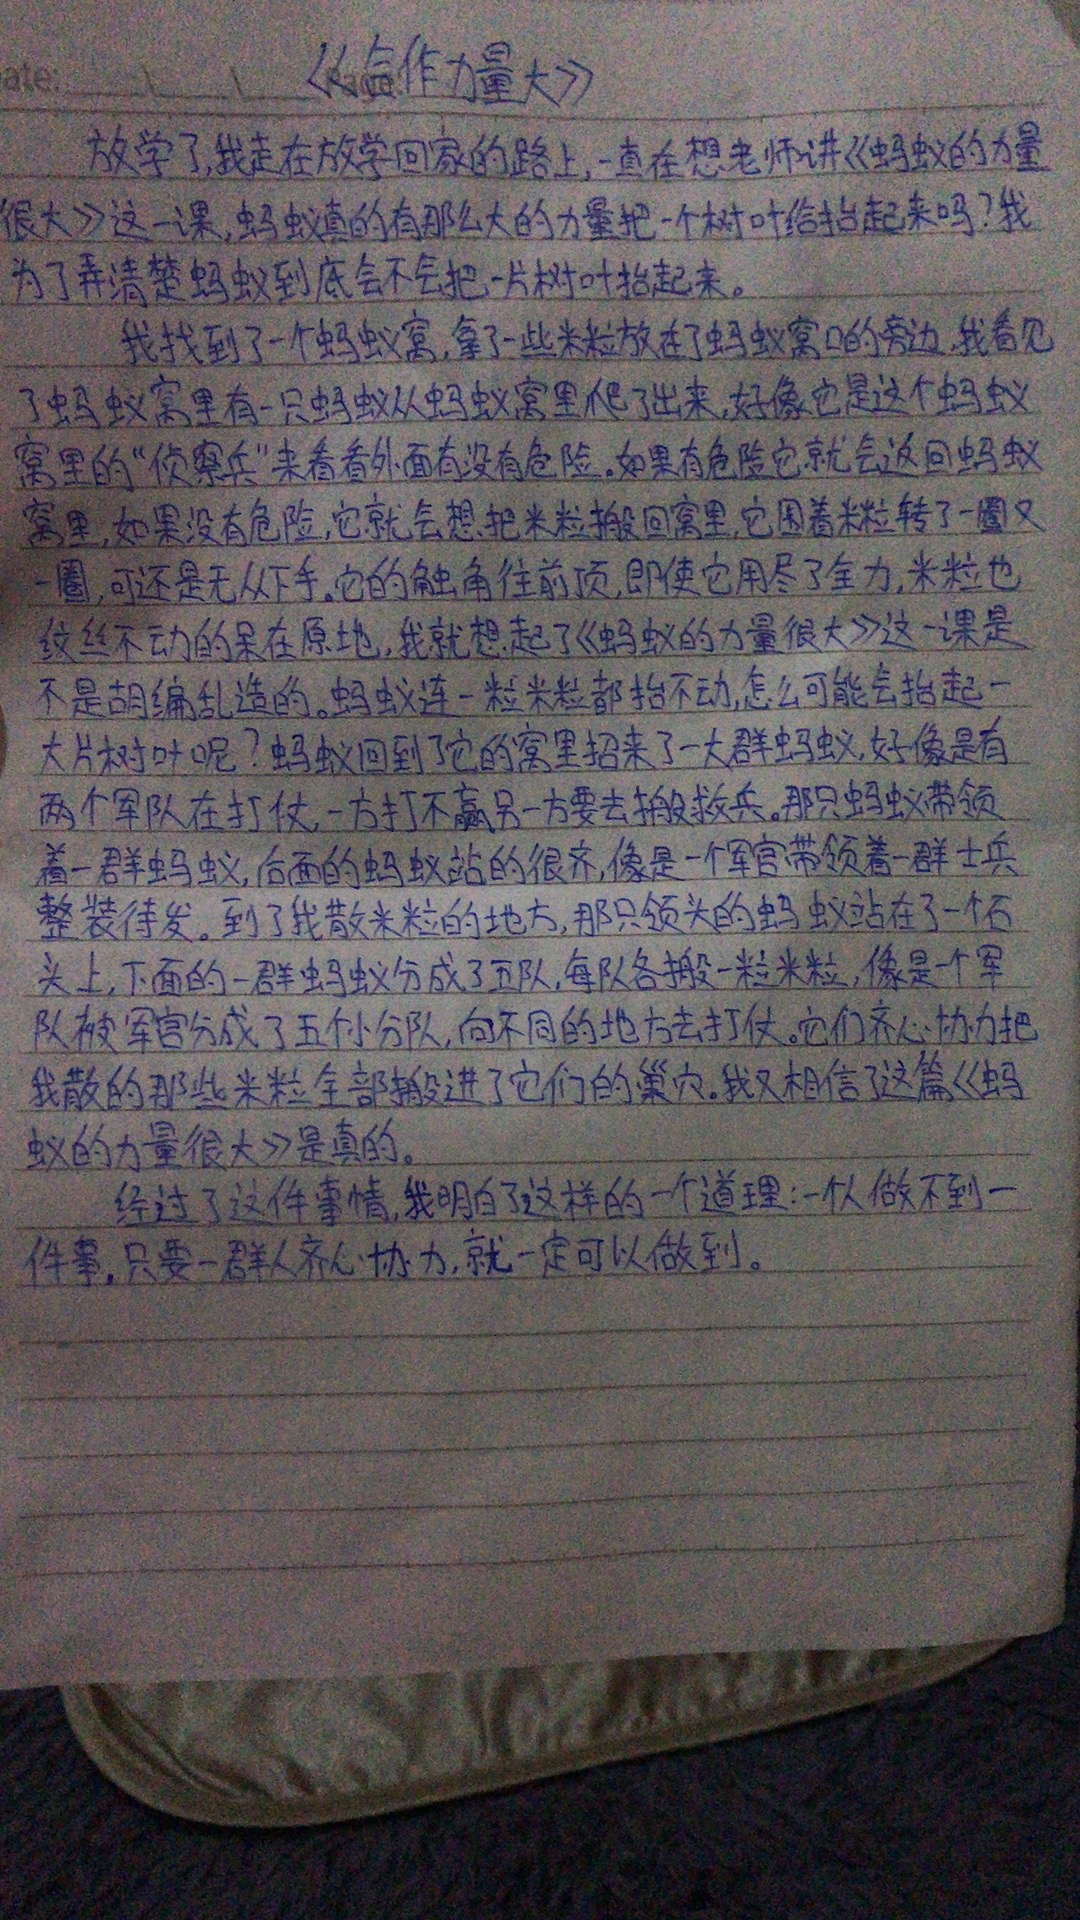 ate:
《合作力量大》
放学了,我走在放学回家的路上,一直在想老师讲《蚂蚁的力量
很大》这一课,蚂蚁真的有那么大的力量把一个树叶给抬起来吗?我
为了弄清楚蚂蚁到底会不会把一片树叶抬起来。
我找到了一个蚂蚁窝,拿了一些米粒放在了蚂蚁窝口的旁边,我看见
了蚂蚁窝里有一只蚂蚁从蚂蚁窝里爬了出来,好像它是这个蚂蚁
窝里的“侦察兵”来看看外面有没有危险。如果有危险它就会返回蚂蚁
窝里,如果没有危险,它就会想把米粒搬回窝里,它围着米粒转了一圈又
一圈,可还是无从下手。它的触角往前顶,即使它用尽了全力,米粒也
纹丝不动的呆在原地,我就想起了《蚂蚁的力量很大》这一课是
不是胡编乱造的。蚂蚁连一粒米粒都抬不动,怎么可能会抬起一
大片树叶呢?蚂蚁回到了它的窝里招来了一大群蚂蚁,好像是有
两个军队在打仗,一方打不赢另一方要去搬救兵。那只蚂蚁带领
着一群蚂蚁,后面的蚂蚁站的很齐,像是一个军官带领着一群士兵
整装待发。到了我散米粒的地方,那只领头的蚂蚁站在了一个石
头上,下面的一群蚂蚁分成了五队,每队各搬一粒米粒,像是一个军
队被军官分成了五个小分队,向不同的地方去打仗。它们齐心协力把
我散的那些米粒全部搬进了它们的巢穴。我又相信了这篇《蚂
蚁的力量很大》是真的。
经过了这件事情,我明白了这样的一个道理:一个人做不到一
件事,只要一群人齐心协力,就一定可以做到。